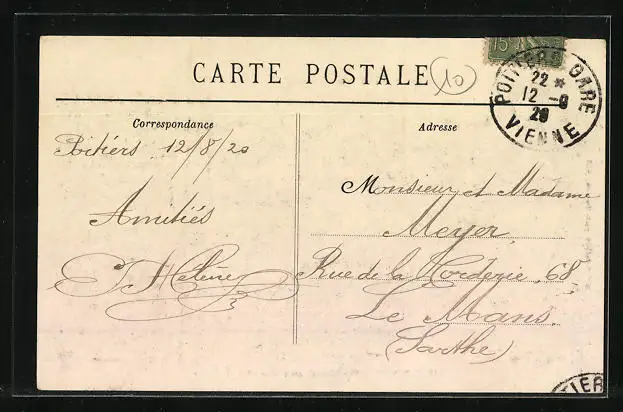 CARTE POSTALE
10
15c
POITIERS GARE
22 *
12 -8
20
VIENNE
Correspondance
Adresse
Poitiers 12/8/20
Amitiés
Hélène
Monsieur et Madame
Meyer
Rue de la Corderie, 68
Le Mans
(Sarthe)
TIER